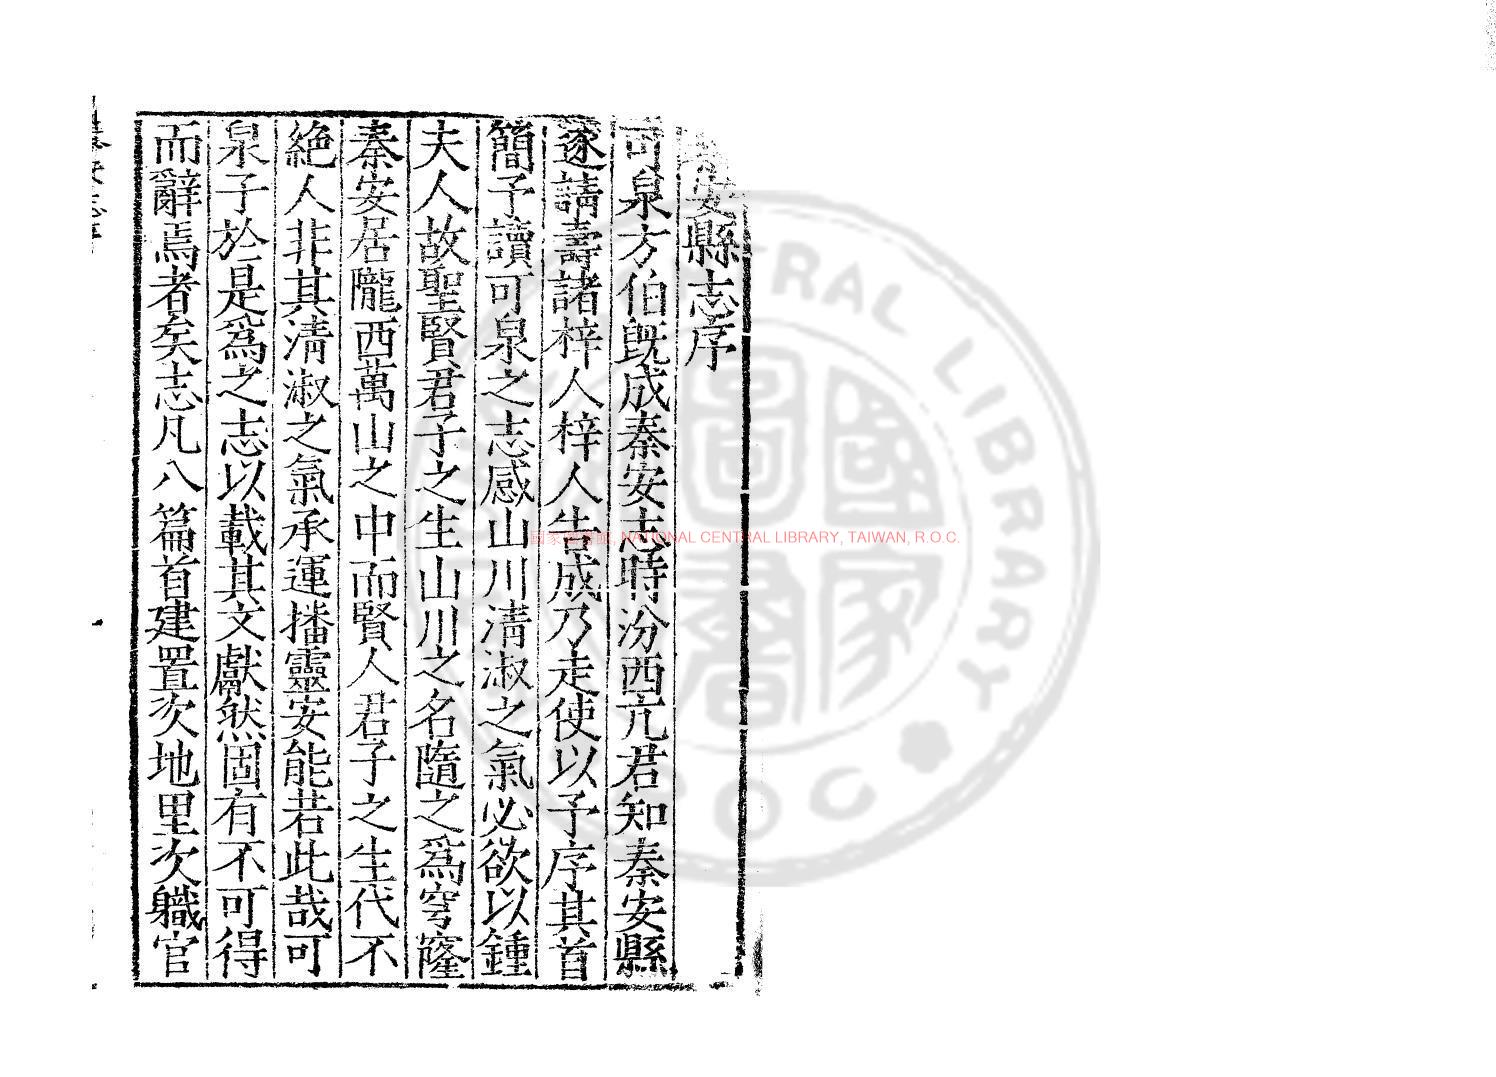 秦安縣志序
可泉方伯旣成秦安志時汾西亢君知秦安縣
遂請壽諸梓人梓人告成乃走使以予序其首
簡予讀可泉之志感山川清淑之氣必欲以鍾
夫人故聖賢君子之生山川之名隨之爲穹窿
秦安居隴西萬山之中而賢人君子之生代不
絶人非其清淑之氣承運播靈安能若此哉可
泉子於是爲之志以載其文獻然固有不可得
而辭焉者矣志凡八篇首建置次地里次軄官
NATIONAL CENTRAL LIBRARY, TAIWAN, R.O.C.